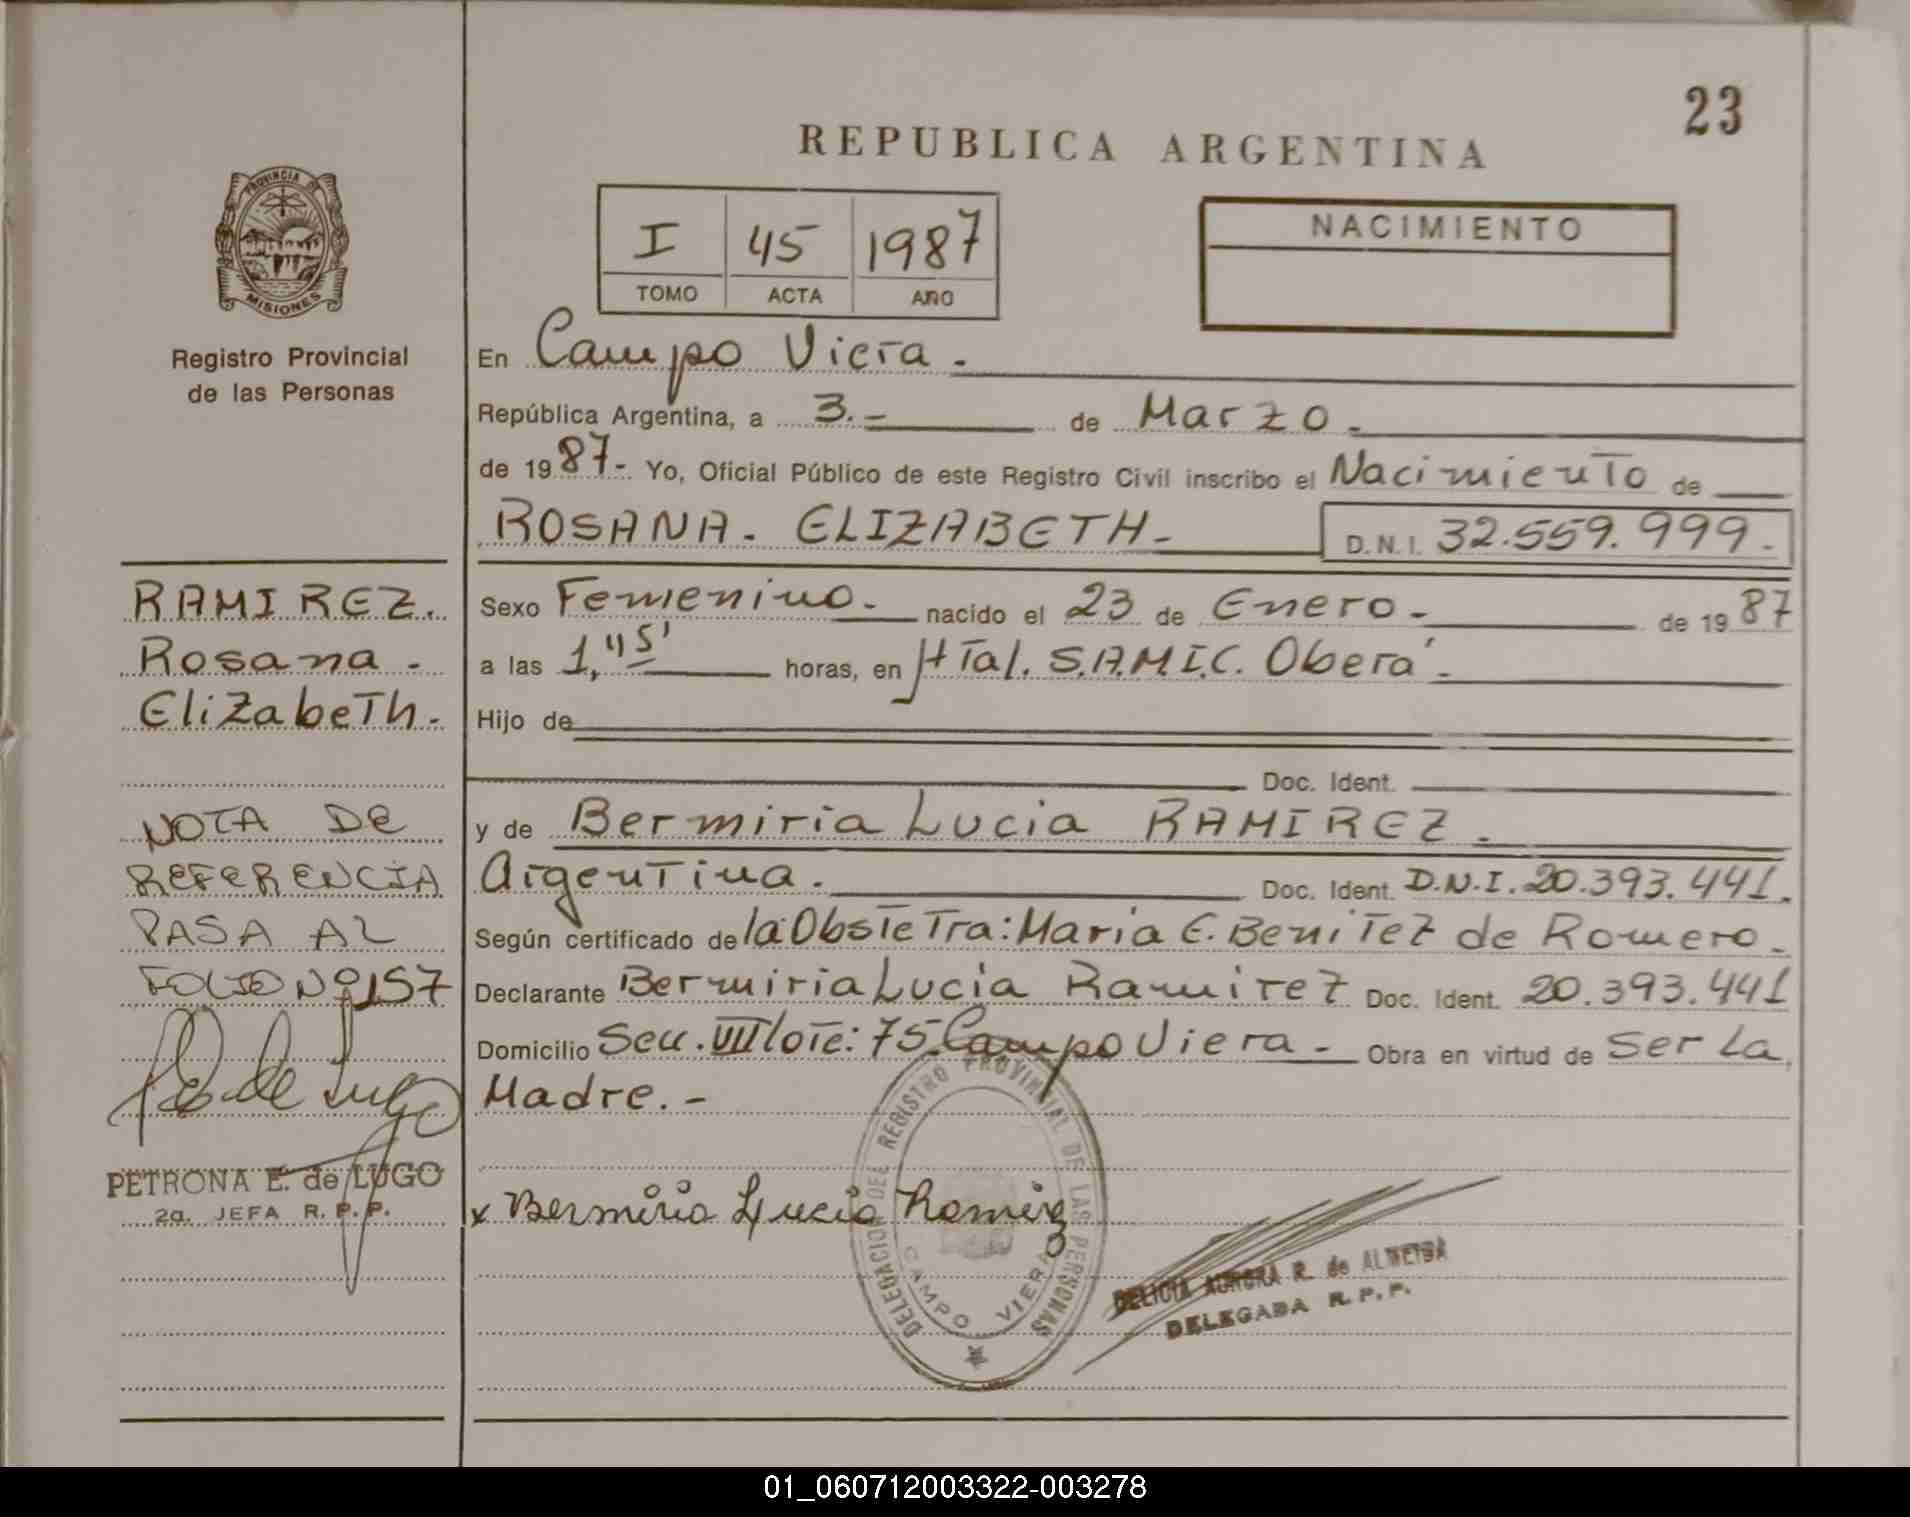 23
REPUBLICA ARGENTINA
PROVINCIA DE
MISIONES
Registro Provincial
de las Personas
I 45 1987
TOMO ACTA AÑO
NACIMIENTO
En Campo Viera.
República Argentina, a 3.- de Marzo.
de 1987.- Yo, Oficial Público de este Registro Civil inscribo el Nacimiento de
ROSANA. ELIZABETH.- D.N.I. 32.559.999.-
Sexo Femenino.- nacido el 23 de Enero.- de 1987
a las 1,45' horas, en Htal. S.A.M.I.C. Oberá.-
Hijo de
Doc. Ident.
y de Bermiria Lucia RAMIREZ.
Argentina. Doc. Ident. D.N.I. 20.393.441.
Según certificado de la Obstetra: Maria E. Benitez de Romero.-
Declarante Bermiria Lucia Ramirez Doc. Ident. 20.393.441
Domicilio Secc. VIII lote: 75 Campo Viera.- Obra en virtud de Ser La
Madre.-
x Bermiria Lucia Ramirez
DELEGACION DEL REGISTRO PROVINCIAL DE LAS PERSONAS
CAMPO VIERA
DELICIA AURORA R. de ALMEIDA
DELEGADA R.P.P.
RAMIREZ.
Rosana.
Elizabeth.
NOTA DE
REFERENCIA
PASA AL
FOLIO Nº 157
P E de Lugo
PETRONA E. de LUGO
2a. JEFA R.P.P.
01_060712003322-003278